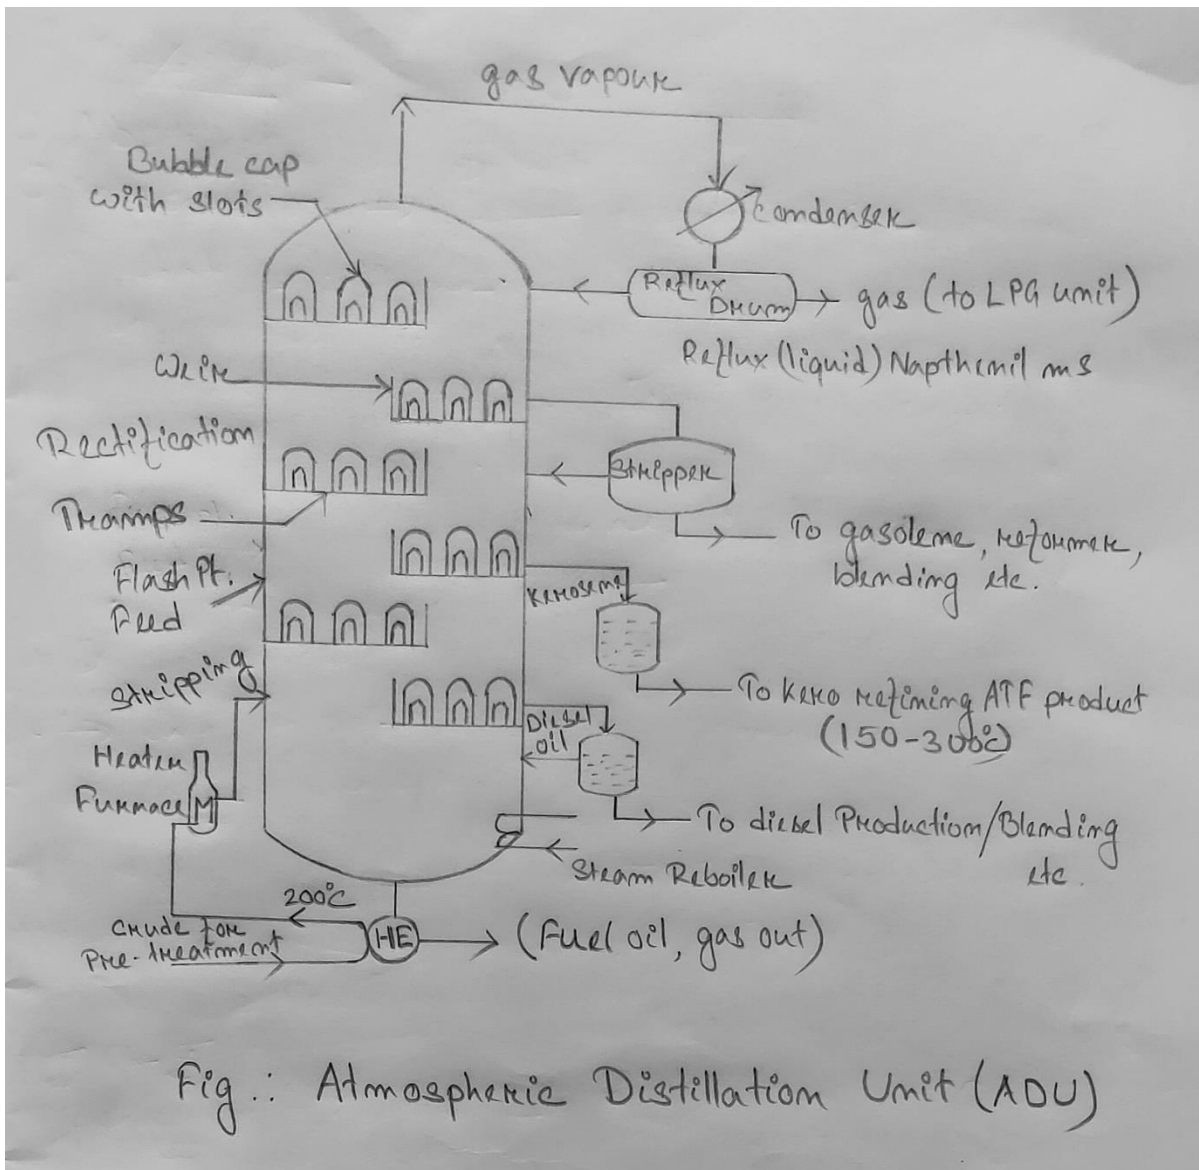 gas vapour
Bubble cap
with slots
Condenser
Reflux
Drum
gas (to LPG unit)
Reflux (liquid) Napthenil ms
Weire
Rectification
Stripper
Tramps
To gasolene, reformer,
blending etc.
Flash Pt.
Feed
Kerosene
Stripping
To Kero refining ATF product
(150-300°C)
Diesel
oil
Heater
Furnace
To diesel Production/Blending
etc.
Steam Reboiler
200°C
Crude for
Pre-treatment
HE
(Fuel oil, gas out)
Fig.: Atmospheric Distillation Unit (ADU)